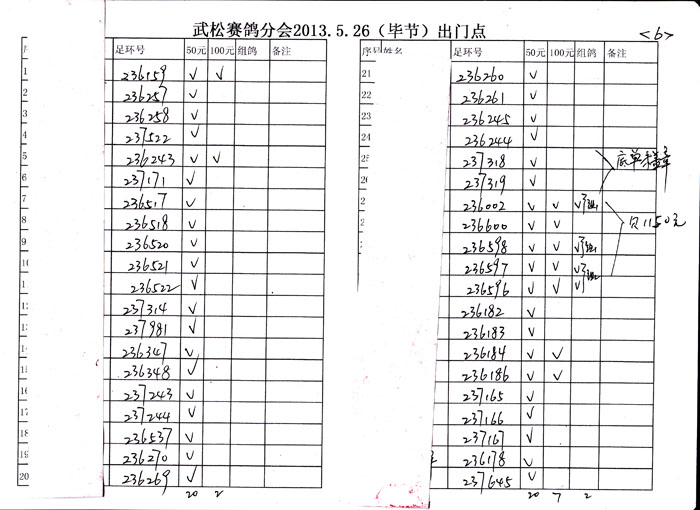 武松赛鸽分会2013.5.26（毕节）出门点
<6>
足环号 50元 100元 组鸽 备注
1 236159 ✓ ✓
2 236257 ✓
3 236258 ✓
4 237522 ✓
5 236243 ✓ ✓
6 237171 ✓
7 236517 ✓
8 236518 ✓
9 236520 ✓
10 236521 ✓
236522 ✓
12 237314 ✓
13 237981 ✓
14 236347 ✓
15 236348 ✓
16 237243 ✓
17 237244 ✓
18 236537 ✓
19 236270 ✓
20 236269 ✓
20 2
序号 姓名 足环号 50元 100元 组鸽 备注
21 236260 ✓
22 236261 ✓
23 236245 ✓
24 236244 ✓
25 237318 ✓ 底单未盖章
26 237319 ✓
236002 ✓ ✓ ✓
236600 ✓ ✓ 欠1150元
236598 ✓ ✓ ✓
236597 ✓ ✓ ✓
236596 ✓ ✓ ✓
236182 ✓
236183 ✓
236184 ✓ ✓
236186 ✓ ✓
237165 ✓
237166 ✓
237167 ✓
236178 ✓
237645 ✓
20 7 2